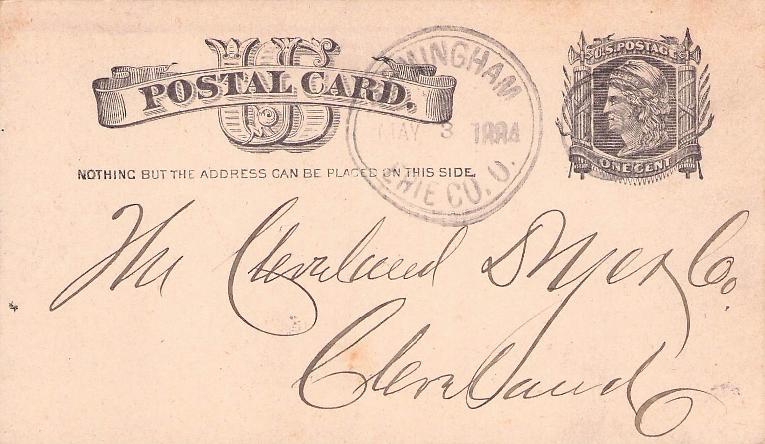 US
POSTAL CARD.
NOTHING BUT THE ADDRESS CAN BE PLACED ON THIS SIDE.
MINGHAM
MAY 3 1884
ERIE CO. O.
U.S. POSTAGE
ONE CENT
The Cleveland Co.
Cleveland